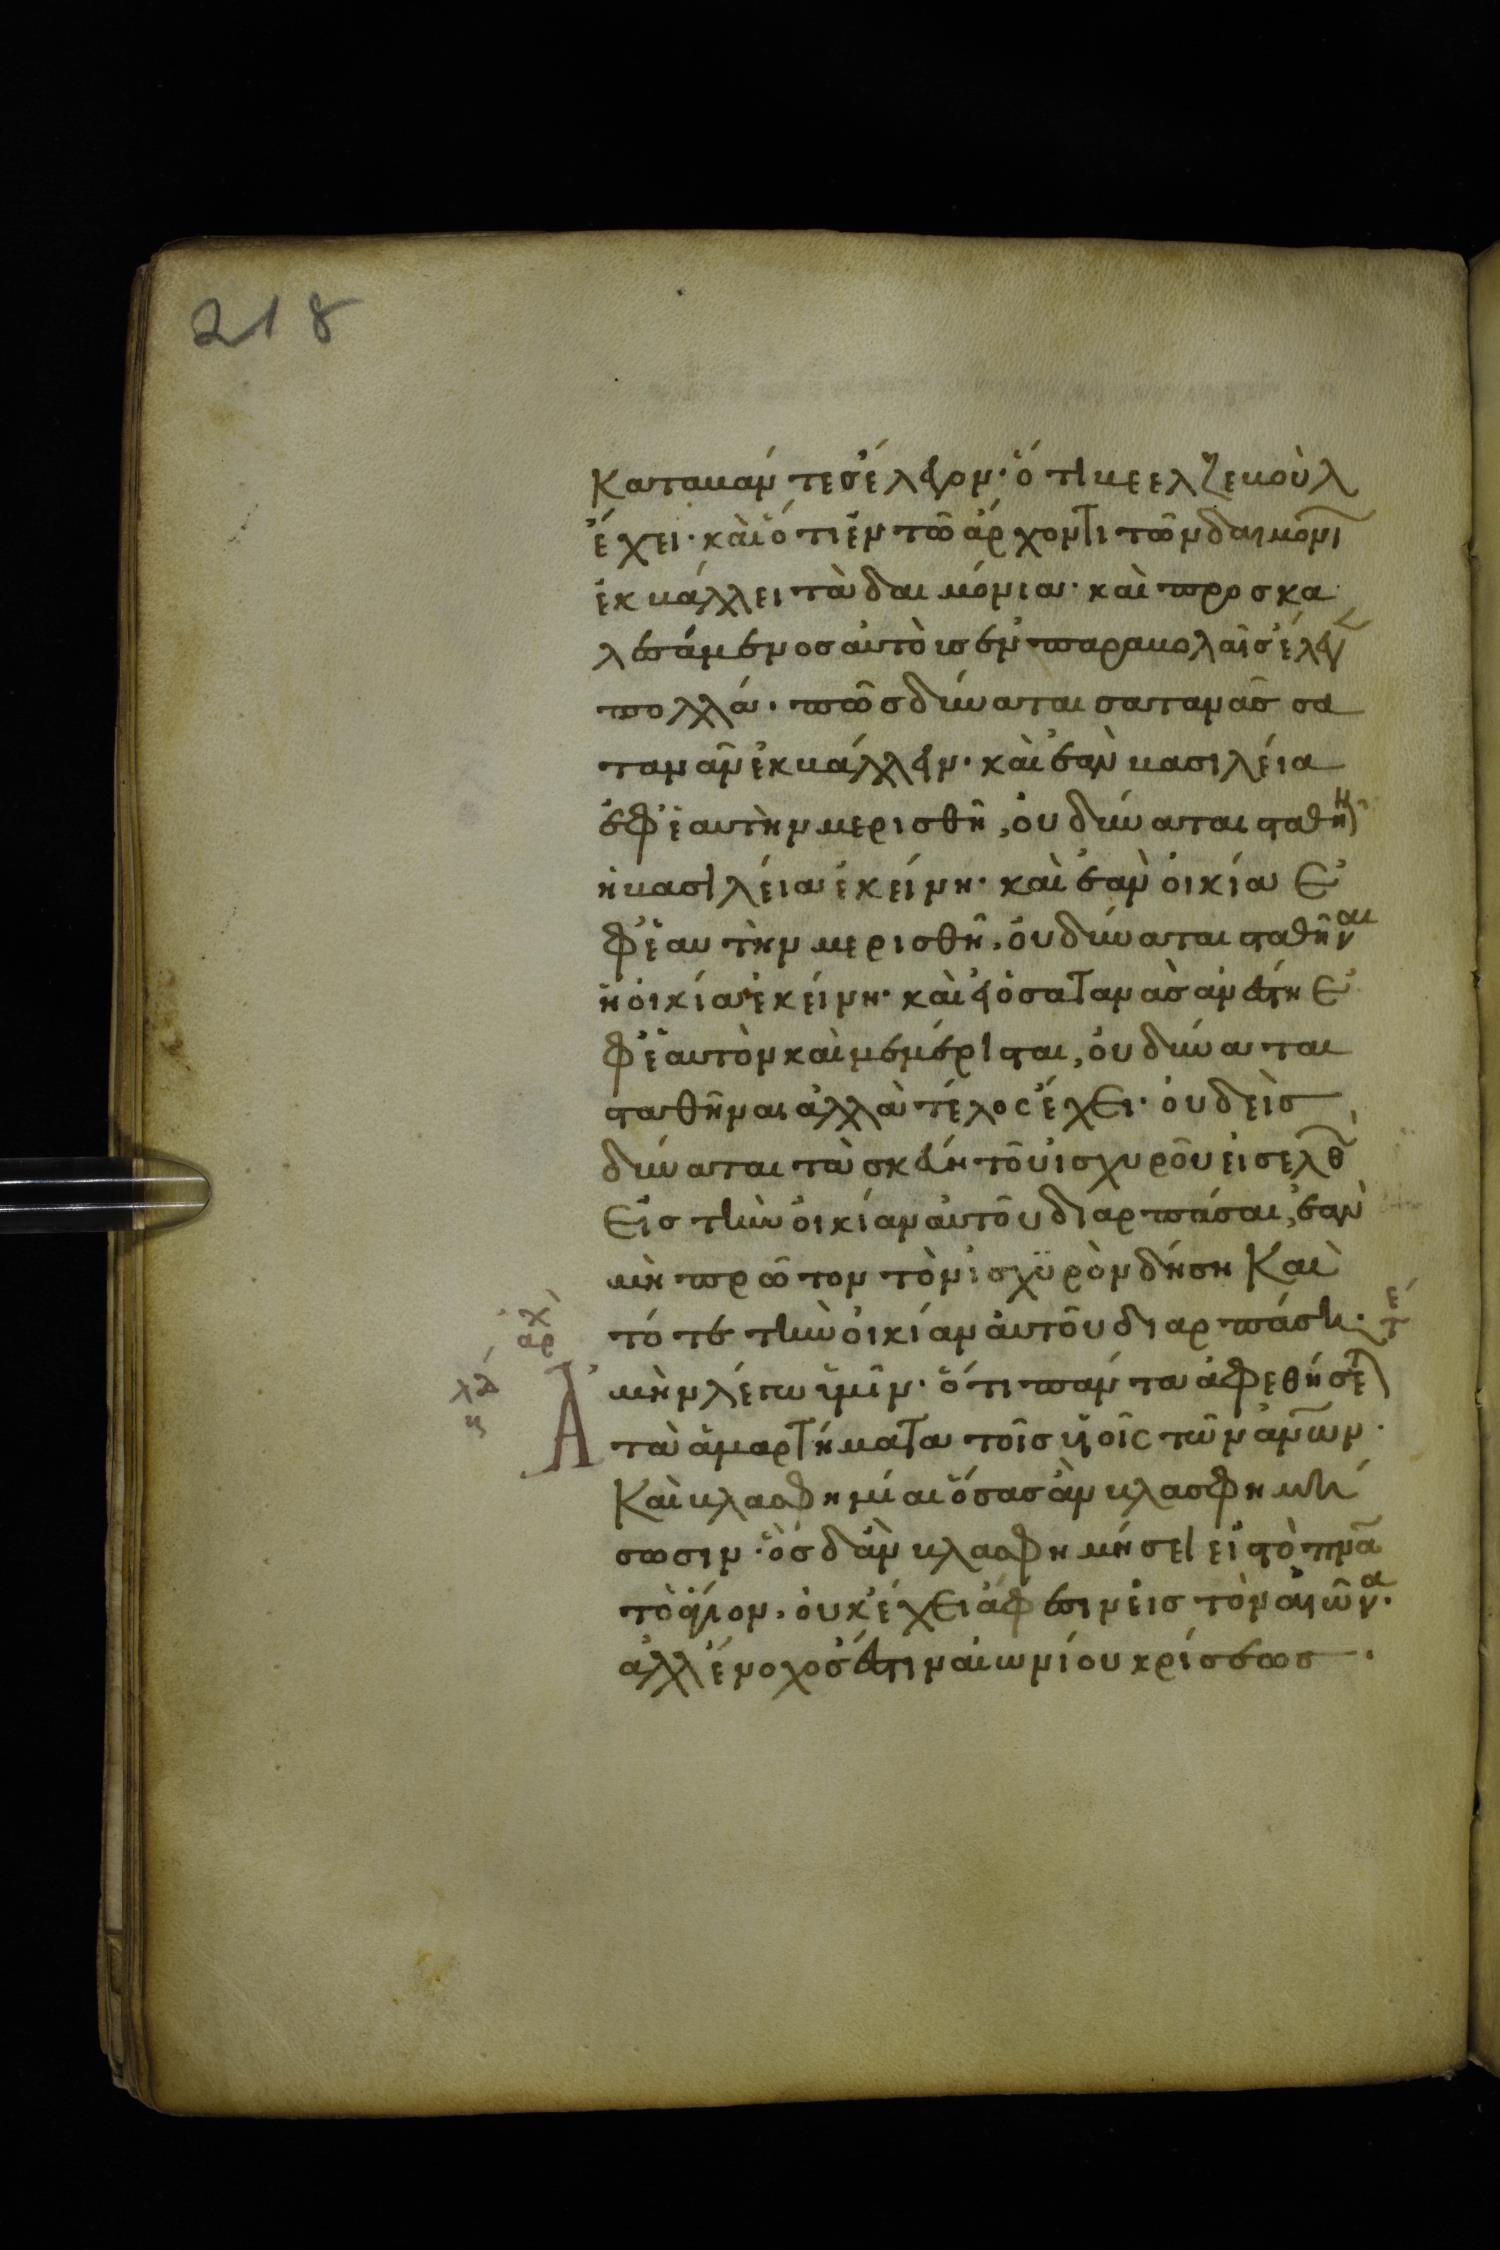 218
καταβάντες έλεγον· ὅτι βεελζεβοὺλ
ἔχει· καὶ ὅτι ἐν τῶ ἄρχοντι τῶν δαιμονί
ἐκβάλλει τὰ δαιμόνια· καὶ προσκα
λεσάμενος αὐτοὺς ἐν παραβολαῖς ἔλεγ
πολλά· πῶς δύναται σατανᾶς σα
τανᾶν ἐκβάλλειν· καὶ ἐὰν βασιλεία
ἐφ ἑαυτὴν μερισθῆ, οὐ δύναται σταθῆν
ἡ βασιλεία ἐκείνη· καὶ ἐὰν οἰκία ἐ
φ ἑαυτὴν μερισθῆ, οὐ δύναται σταθῆναι
ἡ οἰκία ἐκείνη· καὶ εἰ ὁ σατανὰς ἀνέστη ἐ
φ ἑαυτὸν καὶ μεμέρισται, οὐ δύναται
σταθῆναι ἀλλὰ τέλος ἔχει· οὐδεὶς
δύναται τὰ σκεύη τοῦ ἰσχυροῦ εἰσελθ
εἰς τὴν οἰκίαν αὐτοῦ διαρπάσαι, ἐὰν
μὴ πρῶτον τὸν ἰσχϋρὸν δήση Καὶ
ἀρχ τότε τὴν οἰκίαν ἀυτοῦ διαρπάση· τέ
Ἀμὴν λέγω ὑμῖν· ὅτι πάντα ἀφεθήσετ
τὰ ἁμαρτήματα τοῖς υἱοῖς τῶν ἀνων·
Καὶ βλασφημίαι ὅσας ἂν βλασφημή
σωσιν· ὃς δ ἂν βλασφημήσει εἰς τὸ πνα
τὸ ἅγιον, οὐκ ἔχει ἄφεσιν εἰς τὸν αἰῶνα·
ἀλλ ἔνοχος ἔστιν αἰωνίου κρίσεως·